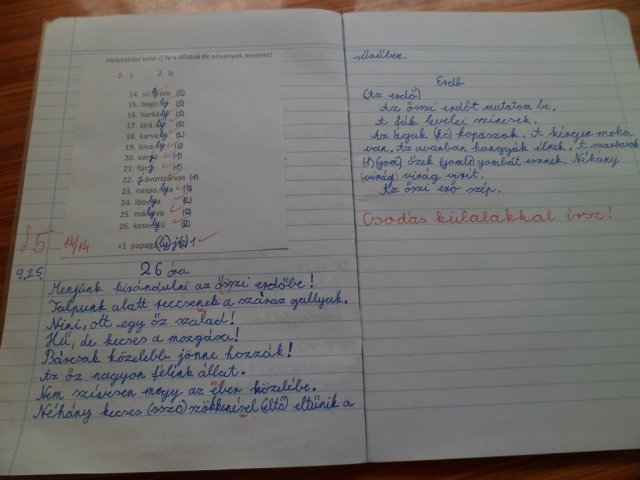 Helyesírási totó /j-ly-s állatok és növények nevével/
1. j 2. ly
14. só ly om (2)
15. bago ly (2)
16. harká ly (2)
17. sirá ly (2)
18. karva ly (2)
19. ibo ly a (2)
20. var j ú (1)
21. für j (1)
22. j ávorszarvas (1)
23. naspo ly a (2)
24. ibo ly a (2)
25. má ly va (2)
26. kese ly ű (2)
+1 papagá (ly) j (2) 1
5 14/14
9.25. 26 óra
Menjünk kirándulni az őszi erdőbe!
Talpunk alatt reccsenek a száraz gallyak.
Nini, ott egy őz szalad!
Hű, de kecses a mozgása!
Bárcsak közelebb jönne hozzák!
Az őz nagyon félénk állat.
Nem szívesen megy az ében közelébe.
Néhány kecses (sszö) szökkenésel (eltö) eltűnik a
sűrűben.
Erdő
(Az erdő)
Az őszi erdőt mutatom be.
A fák levelei színesek.
Az ágak (ko) kopaszok. A kérgen moha
van. Az avarban hangyák élnek. A szarvasok
(gom) őzek (gomb) gombát esznek. Néhány
(virág) virág virít.
Az őszi erő szép.
Csodás külalakkal írsz!